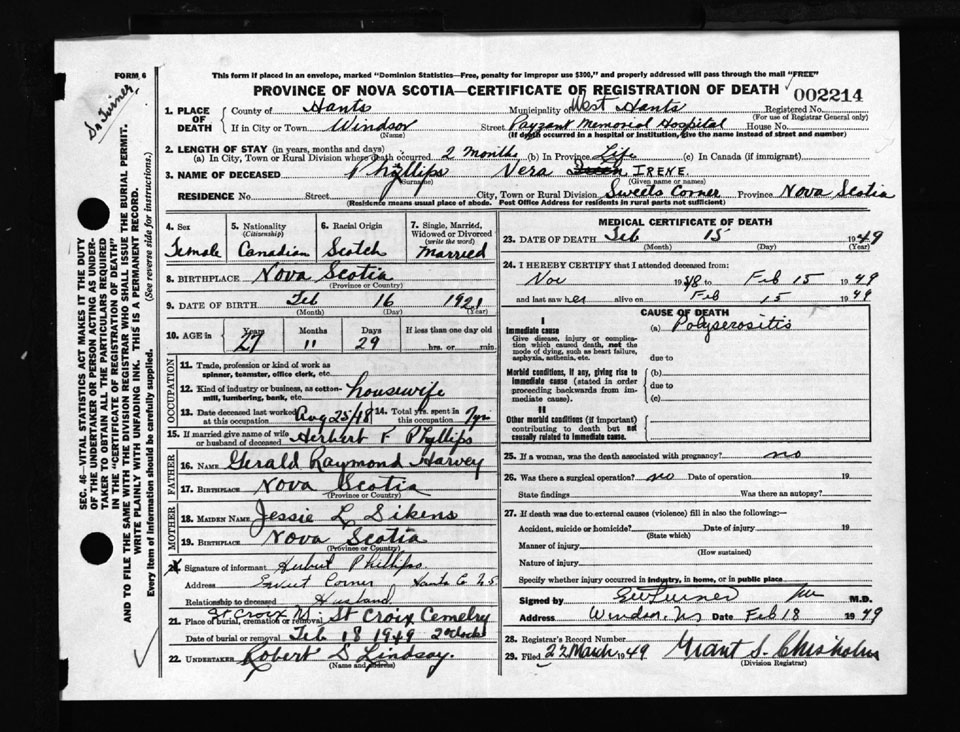 FORM 6
Dr Turner
This form if placed in an envelope, marked "Dominion Statistics—Free, penalty for improper use $300," and properly addressed will pass through the mail "FREE"
PROVINCE OF NOVA SCOTIA—CERTIFICATE OF REGISTRATION OF DEATH 002214
1. PLACE OF DEATH County of Hants Municipality of West Hants Registered No.
(For use of Registrar General only)
If in City or Town Windsor Street Payzant Memorial Hospital House No.
(Name) (If death occurred in a hospital or institution, give the name instead of street and number)
2. LENGTH OF STAY (in years, months and days)
(a) In City, Town or Rural Division where death occurred 2 months (b) In Province Life (c) In Canada (if immigrant)
3. NAME OF DECEASED Phyllips Vera IRENE.
(Surname) (Given name or names)
RESIDENCE No. Street City, Town or Rural Division Sweets Corner Province Nova Scotia
(Residence means usual place of abode. Post Office Address for residents in rural parts not sufficient)
SEC. 46—VITAL STATISTICS ACT MAKES IT THE DUTY
OF THE UNDERTAKER OR PERSON ACTING AS UNDER-
TAKER TO OBTAIN ALL THE PARTICULARS REQUIRED
IN THE "CERTIFICATE OF REGISTRATION OF DEATH"
AND TO FILE THE SAME WITH THE DIVISION REGISTRAR WHO SHALL ISSUE THE BURIAL PERMIT.
WRITE PLAINLY WITH UNFADING INK. THIS IS A PERMANENT RECORD.
Every item of information should be carefully supplied. (See reverse side for instructions.)
4. Sex
Female
5. Nationality
(Citizenship)
Canadian
6. Racial Origin
Scotch
7. Single, Married, Widowed or Divorced
(write the word)
Married
8. BIRTHPLACE Nova Scotia
(Province or Country)
9. DATE OF BIRTH Feb 16 1921
(Month) (Day) (Year)
10. AGE in Years Months Days If less than one day old
27 11 29 hrs. or min.
OCCUPATION
11. Trade, profession or kind of work as
spinner, teamster, office clerk, etc.
12. Kind of industry or business, as cotton-
mill, lumbering, bank, etc. housewife
13. Date deceased last worked at this occupation Aug 25/48 14. Total yrs. spent in this occupation 7yr
15. If married give name of wife or husband of deceased Herbert F Phyllips
FATHER
16. NAME Gerald Raymond Harvey
17. BIRTHPLACE Nova Scotia
(Province or Country)
MOTHER
18. MAIDEN NAME Jessie L Sikens
19. BIRTHPLACE Nova Scotia
(Province or Country)
Signature of informant Herbert Phillips
Address Sweet Corner Hants Co N S
Relationship to deceased Husband
21. Place of burial, cremation or removal St Croix NS St Croix Cemetry
Date of burial or removal Feb 18 1949 2 oclock
22. UNDERTAKER Robert S Lindsay.
(Name and address)
MEDICAL CERTIFICATE OF DEATH
23. DATE OF DEATH Feb 15 1949
(Month) (Day) (Year)
24. I HEREBY CERTIFY that I attended deceased from:
Nov 1948 to Feb 15 1949
and last saw her alive on Feb 15 1949
CAUSE OF DEATH
I
Immediate cause (a) Polyserositis
Give disease, injury or complica-
tion which caused death, not the
mode of dying, such as heart failure,
asphyxia, asthenia, etc. due to
Morbid conditions, if any, giving rise to
immediate cause (stated in order
proceeding backwards from im-
mediate cause). (b)
due to
(c)
II
Other morbid conditions (if important)
contributing to death but not
causally related to immediate cause.
25. If a woman, was the death associated with pregnancy? no
26. Was there a surgical operation? no Date of operation 19
State findings Was there an autopsy?
27. If death was due to external causes (violence) fill in also the following:—
Accident, suicide or homicide? Date of injury 19
(State which)
Manner of injury
(How sustained)
Nature of injury
Specify whether injury occurred in industry, in home, or in public place
Signed by EW Turner M.D.
Address Windsor, NS Date Feb 18 1949
28. Registrar's Record Number
29. Filed 22 March 1949 Grant S. Chisholm
(Division Registrar)